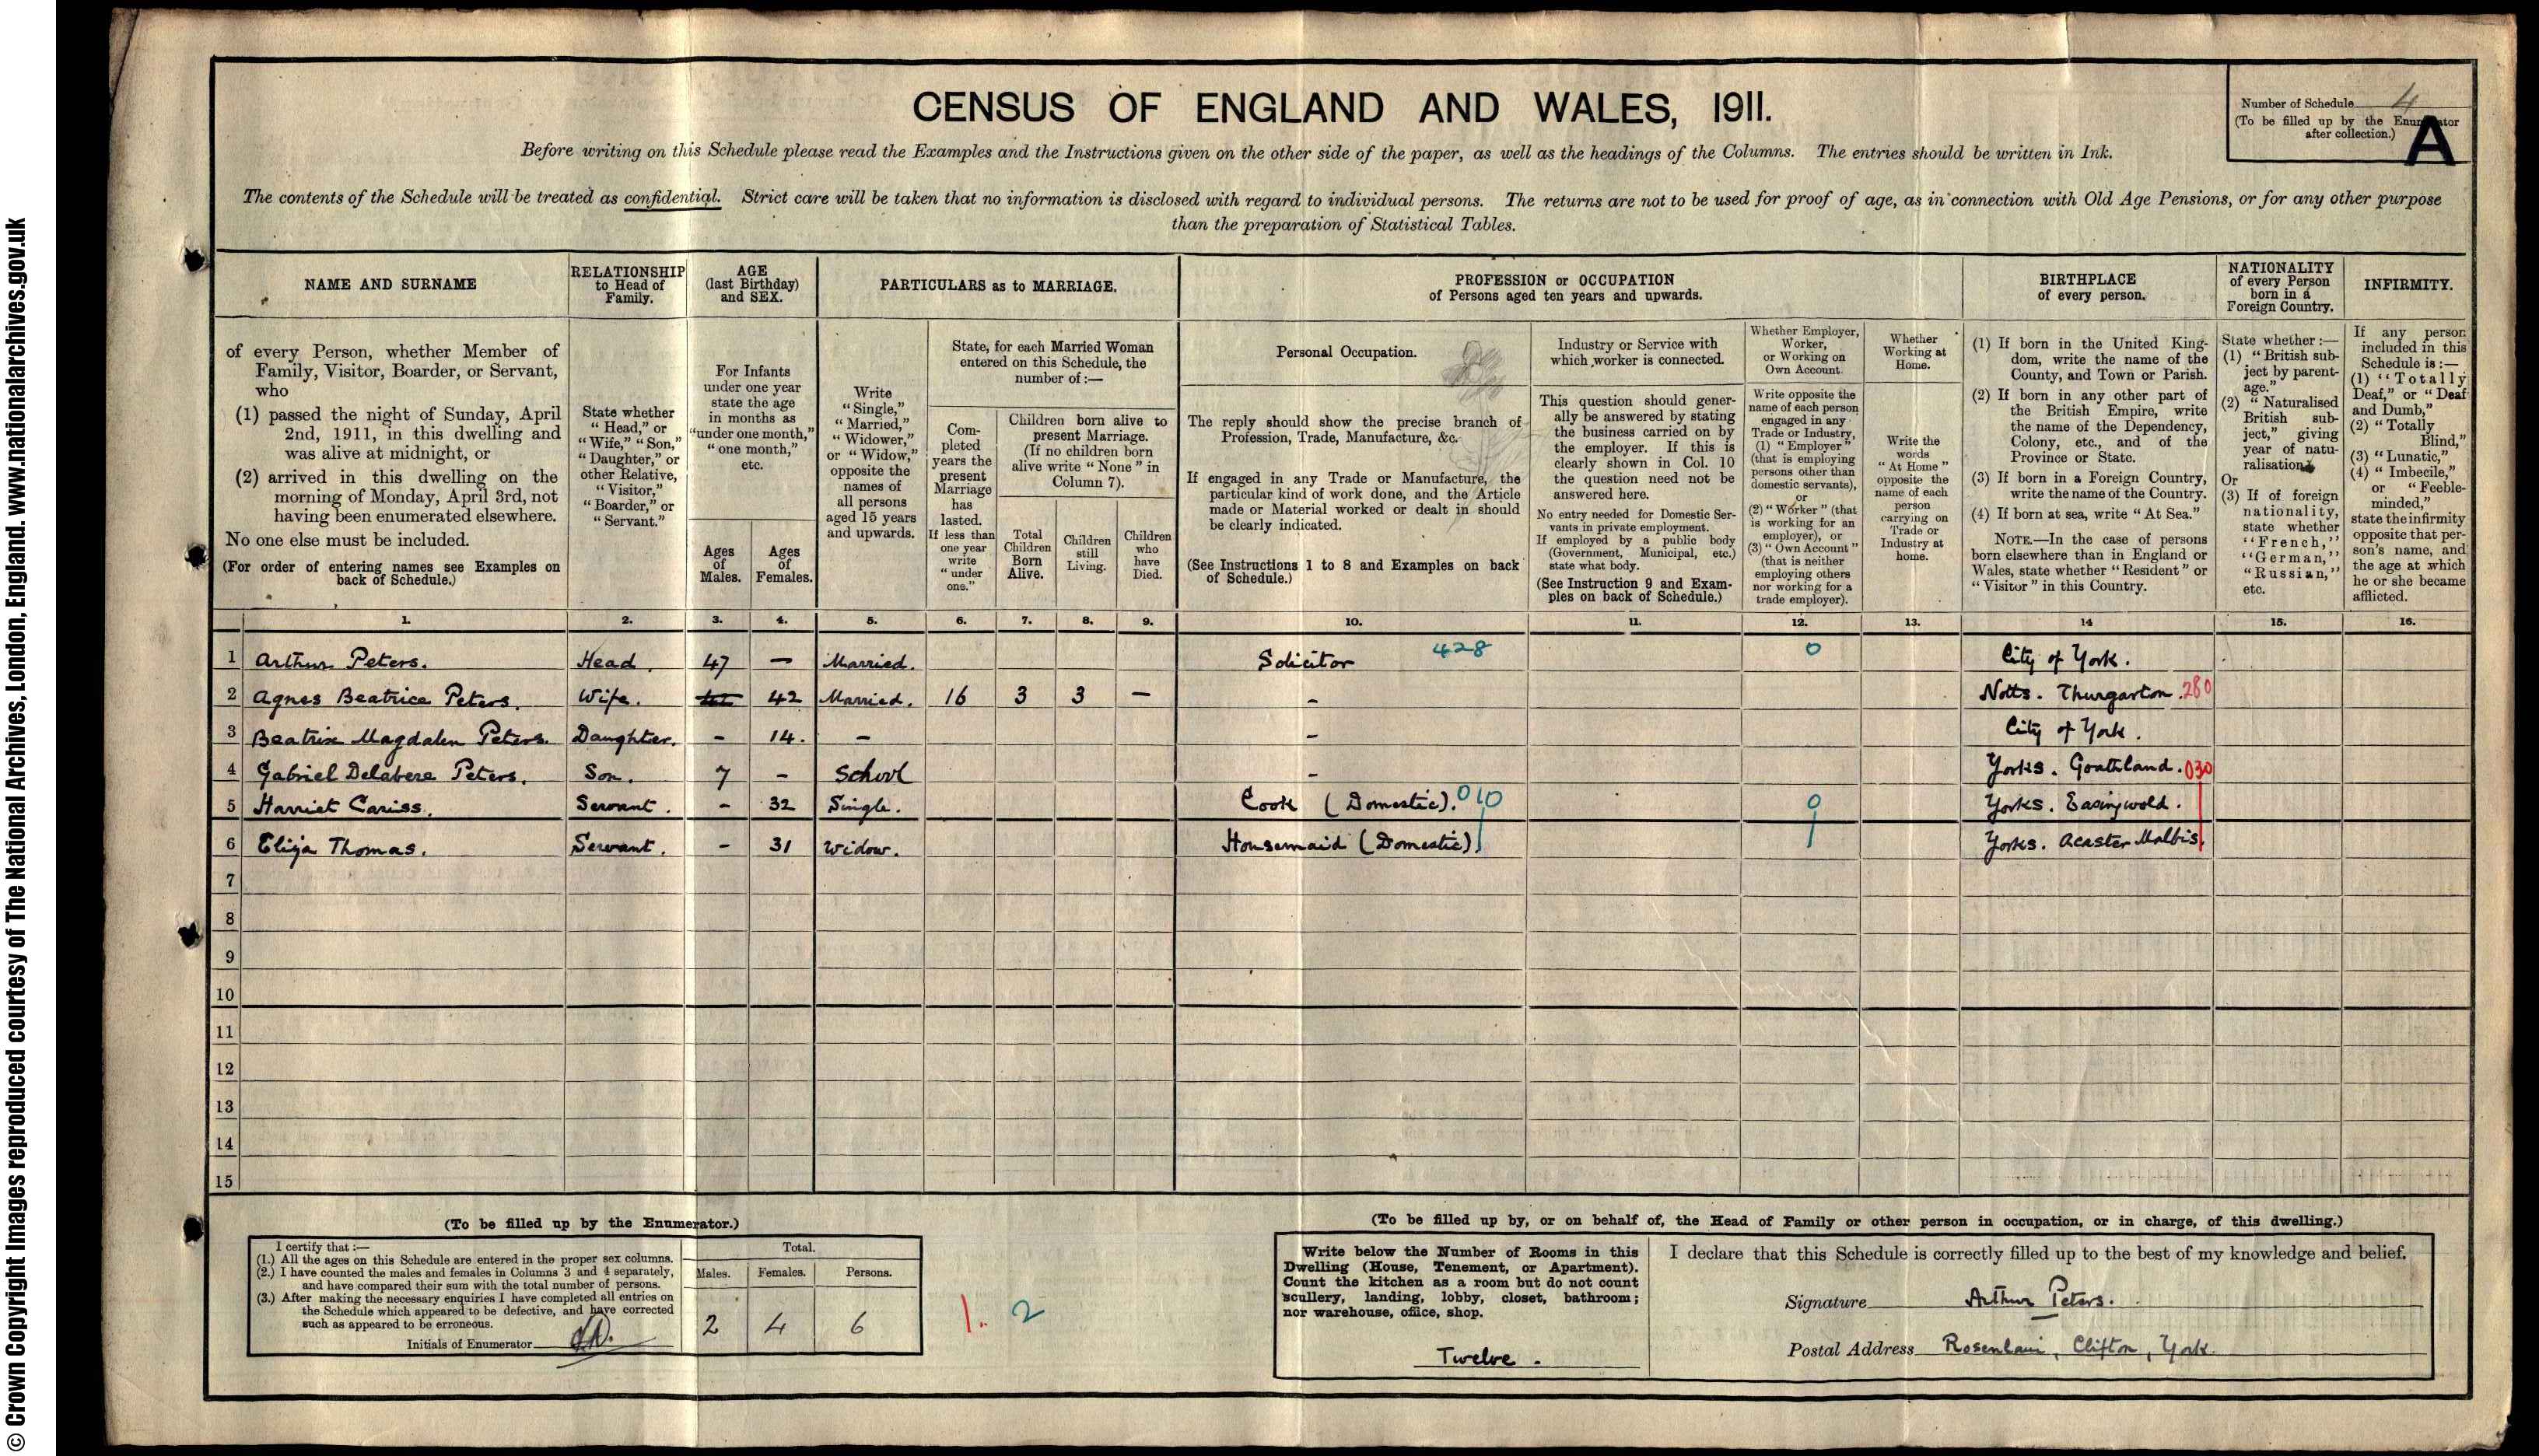 CENSUS OF ENGLAND AND WALES, 1911.
Number of Schedule 4
(To be filled up by the Enumerator after collection.)
A
Before writing on this Schedule please read the Examples and the Instructions given on the other side of the paper, as well as the headings of the Columns. The entries should be written in Ink.
The contents of the Schedule will be treated as confidential. Strict care will be taken that no information is disclosed with regard to individual persons. The returns are not to be used for proof of age, as in connection with Old Age Pensions, or for any other purpose
than the preparation of Statistical Tables.
NAME AND SURNAME
of every Person, whether Member of
Family, Visitor, Boarder, or Servant,
who
(1) passed the night of Sunday, April
2nd, 1911, in this dwelling and
was alive at midnight, or
(2) arrived in this dwelling on the
morning of Monday, April 3rd, not
having been enumerated elsewhere.
No one else must be included.
(For order of entering names see Examples on
back of Schedule.)
RELATIONSHIP
to Head of
Family.
State whether
"Head," or
"Wife," "Son,"
"Daughter," or
other Relative,
"Visitor,"
"Boarder," or
"Servant."
AGE
(last Birthday)
and SEX.
For Infants
under one year
state the age
in months as
"under one month,"
"one month,"
etc.
Ages
of
Males.
Ages
of
Females.
PARTICULARS as to MARRIAGE.
Write
"Single,"
"Married,"
"Widower,"
or "Widow,"
opposite the
names of
all persons
aged 15 years
and upwards.
State, for each Married Woman
entered on this Schedule, the
number of:—
Com-
pleted
years the
present
Marriage
has
lasted.
If less than
one year
write
"under
one."
Children born alive to
present Marriage.
(If no children born
alive write "None" in
Column 7).
Total
Children
Born
Alive.
Children
still
Living.
Children
who
have
Died.
PROFESSION or OCCUPATION
of Persons aged ten years and upwards.
Personal Occupation.
The reply should show the precise branch of
Profession, Trade, Manufacture, &c.
If engaged in any Trade or Manufacture, the
particular kind of work done, and the Article
made or Material worked or dealt in should
be clearly indicated.
(See Instructions 1 to 8 and Examples on back
of Schedule.)
Industry or Service with
which worker is connected.
This question should gener-
ally be answered by stating
the business carried on by
the employer. If this is
clearly shown in Col. 10
the question need not be
answered here.
No entry needed for Domestic Ser-
vants in private employment.
If employed by a public body
(Government, Municipal, etc.)
state what body.
(See Instruction 9 and Exam-
ples on back of Schedule.)
Whether Employer,
Worker,
or Working on
Own Account.
Write opposite the
name of each person
engaged in any
Trade or Industry,
(1) "Employer"
(that is employing
persons other than
domestic servants),
or
(2) "Worker" (that
is working for an
employer), or
(3) "Own Account"
(that is neither
employing others
nor working for a
trade employer).
Whether
Working at
Home.
Write the
words
"At Home"
opposite the
name of each
person
carrying on
Trade or
Industry at
home.
BIRTHPLACE
of every person.
(1) If born in the United King-
dom, write the name of the
County, and Town or Parish.
(2) If born in any other part of
the British Empire, write
the name of the Dependency,
Colony, etc., and of the
Province or State.
(3) If born in a Foreign Country,
write the name of the Country.
(4) If born at sea, write "At Sea."
NOTE.—In the case of persons
born elsewhere than in England or
Wales, state whether "Resident" or
"Visitor" in this Country.
NATIONALITY
of every Person
born in a
Foreign Country.
State whether:—
(1) "British sub-
ject by parent-
age."
(2) "Naturalised
British sub-
ject," giving
year of natu-
ralisation.
Or
(3) If of foreign
nationality,
state whether
"French,"
"German,"
"Russian,"
etc.
INFIRMITY.
If any person
included in this
Schedule is:—
(1) "Totally
Deaf," or "Deaf
and Dumb,"
(2) "Totally
Blind,"
(3) "Lunatic,"
(4) "Imbecile,"
or "Feeble-
minded,"
state the infirmity
opposite that per-
son's name, and
the age at which
he or she became
afflicted.
1. 2. 3. 4. 5. 6. 7. 8. 9. 10. 11. 12. 13. 14 15. 16.
1 Arthur Peters. Head. 47 — Married. Solicitor 428 0 City of York.
2 Agnes Beatrice Peters. Wife. 42 Married. 16 3 3 — – Notts. Thurgarton. 280
3 Beatrix Magdalen Peters. Daughter. – 14. – – City of York.
4 Gabriel Delabere Peters. Son. 7 – School – Yorks. Goathland. 030
5 Harriet Cariss. Servant. – 32 Single. Cook (Domestic). 010 0 Yorks. Easingwold.
6 Eliza Thomas. Servant. – 31 Widow. Housemaid (Domestic) Yorks. Acaster Malbis.
7
8
9
10
11
12
13
14
15
(To be filled up by the Enumerator.)
I certify that:—
(1.) All the ages on this Schedule are entered in the proper sex columns.
(2.) I have counted the males and females in Columns 3 and 4 separately,
and have compared their sum with the total number of persons.
(3.) After making the necessary enquiries I have completed all entries on
the Schedule which appeared to be defective, and have corrected
such as appeared to be erroneous.
Initials of Enumerator
Total.
Males. Females. Persons.
2 4 6
1. 2
(To be filled up by, or on behalf of, the Head of Family or other person in occupation, or in charge, of this dwelling.)
Write below the Number of Rooms in this
Dwelling (House, Tenement, or Apartment).
Count the kitchen as a room but do not count
scullery, landing, lobby, closet, bathroom;
nor warehouse, office, shop.
Twelve.
I declare that this Schedule is correctly filled up to the best of my knowledge and belief.
Signature Arthur Peters.
Postal Address Rosenlaui, Clifton, York.
© Crown Copyright Images reproduced courtesy of The National Archives, London, England. www.nationalarchives.gov.uk